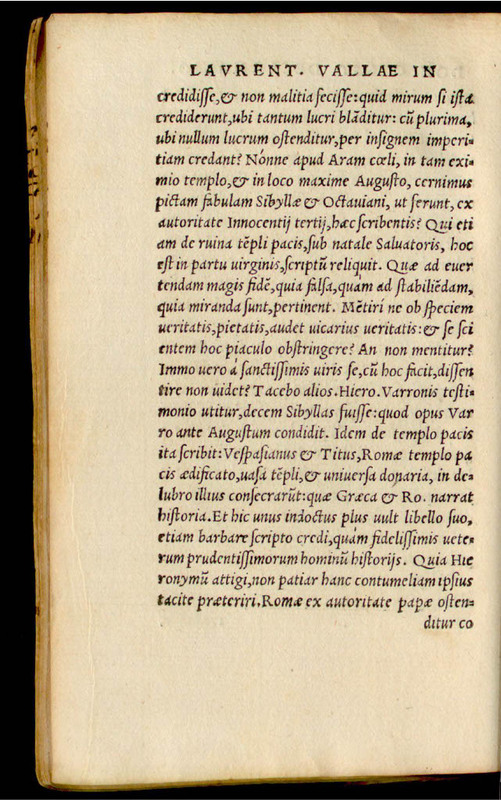 LAVRENT. VALLAE IN
credidisse,& non malitia fecisse:quid mirum si ista
crediderunt,ubi tantum lucri blãditur: cũ plurima,
ubi nullum lucrum ostenditur,per insignem imperi-
tiam credant? Nónne apud Aram cœli, in tam exi-
mio templo,& in loco maxime Augusto, cernimus
pictam fabulam Sibyllæ & Octauiani, ut ferunt, ex
autoritate Innocentij tertij,hæc scribentis? Qui eti
am de ruina tẽpli pacis,sub natale Saluatoris, hoc
est in partu uirginis,scriptũ reliquit. Quæ ad euer
tendam magis fidẽ,quia falsa,quàm ad stabiliẽdam,
quia miranda sunt,pertinent. Mẽtiri ne ob speciem
ueritatis,pietatis,audet uicarius ueritatis:& se sci
entem hoc piaculo obstringere? An non mentitur?
Immo uero à sanctissimis uiris se,cũ hoc facit,dissen
tire non uidet? Tacebo alios.Hiero.Varronis testi-
monio utitur,decem Sibyllas fuisse:quod opus Var
ro ante Augustum condidit. Idem de templo pacis
ita scribit:Vespasianus & Titus,Romæ templo pa
cis ædificato,uasa tẽpli,& uniuersa donaria, in de-
lubro illius consecrarũt:quæ Græca & Ro. narrat
historia.Et hic unus indoctus plus uult libello suo,
etiam barbare scripto credi,quàm fidelissimis uete-
rum prudentissimorum hominũ historijs. Quia Hie
ronymũ attigi,non patiar hanc contumeliam ipsius
tacite præteriri.Romæ ex autoritate papæ osten-
ditur co